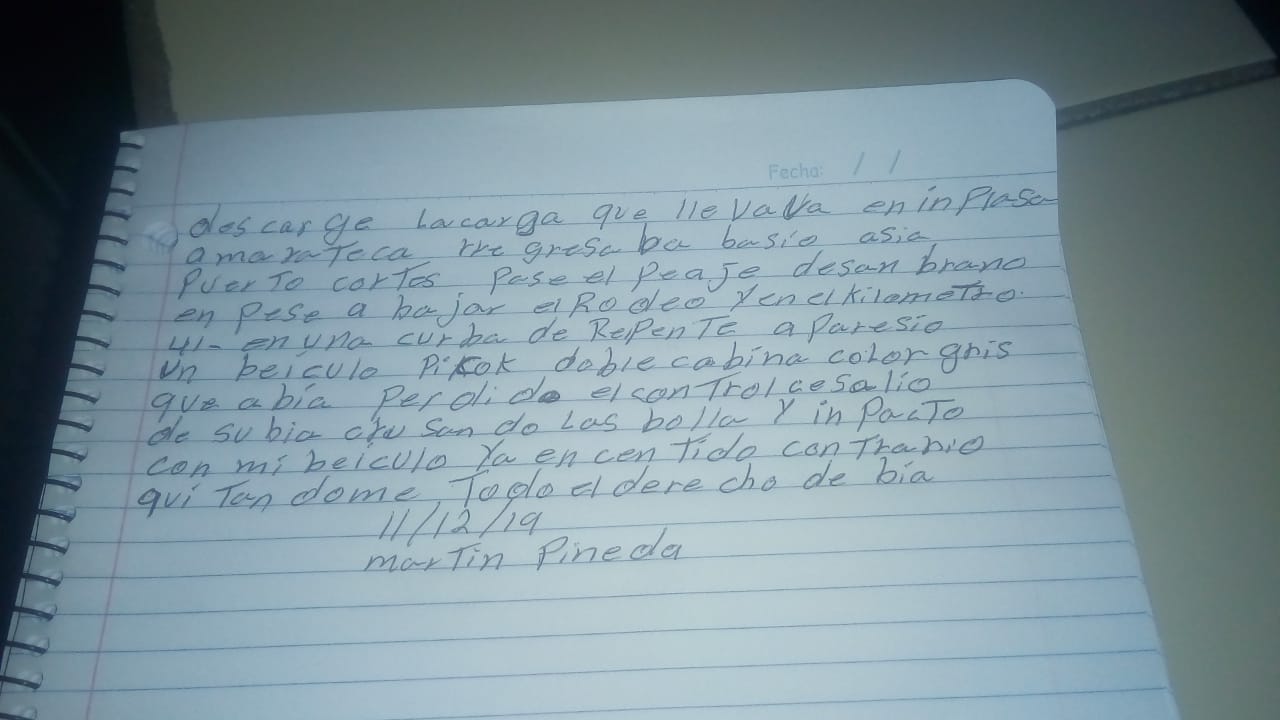 Fecha: / /
descarge Lacarga que lleVaVa en inPlasa
amarateca rregresaba basio asia
Puerto cortes Pase el Peaje desanbrano
en pese a bajar el Rodeo Yen el kilometro.
41- en una curba de RePenTe aParesio
un beiculo Pikok doble cabina color gris
que abia Perdido el conTrol cesalio
de su bia crusando Las bolla Y inPacTo
con mi beiculo Ya en cenTido conTrario
quiTandome Todo el derecho de bia
11/12/19
marTin Pineda